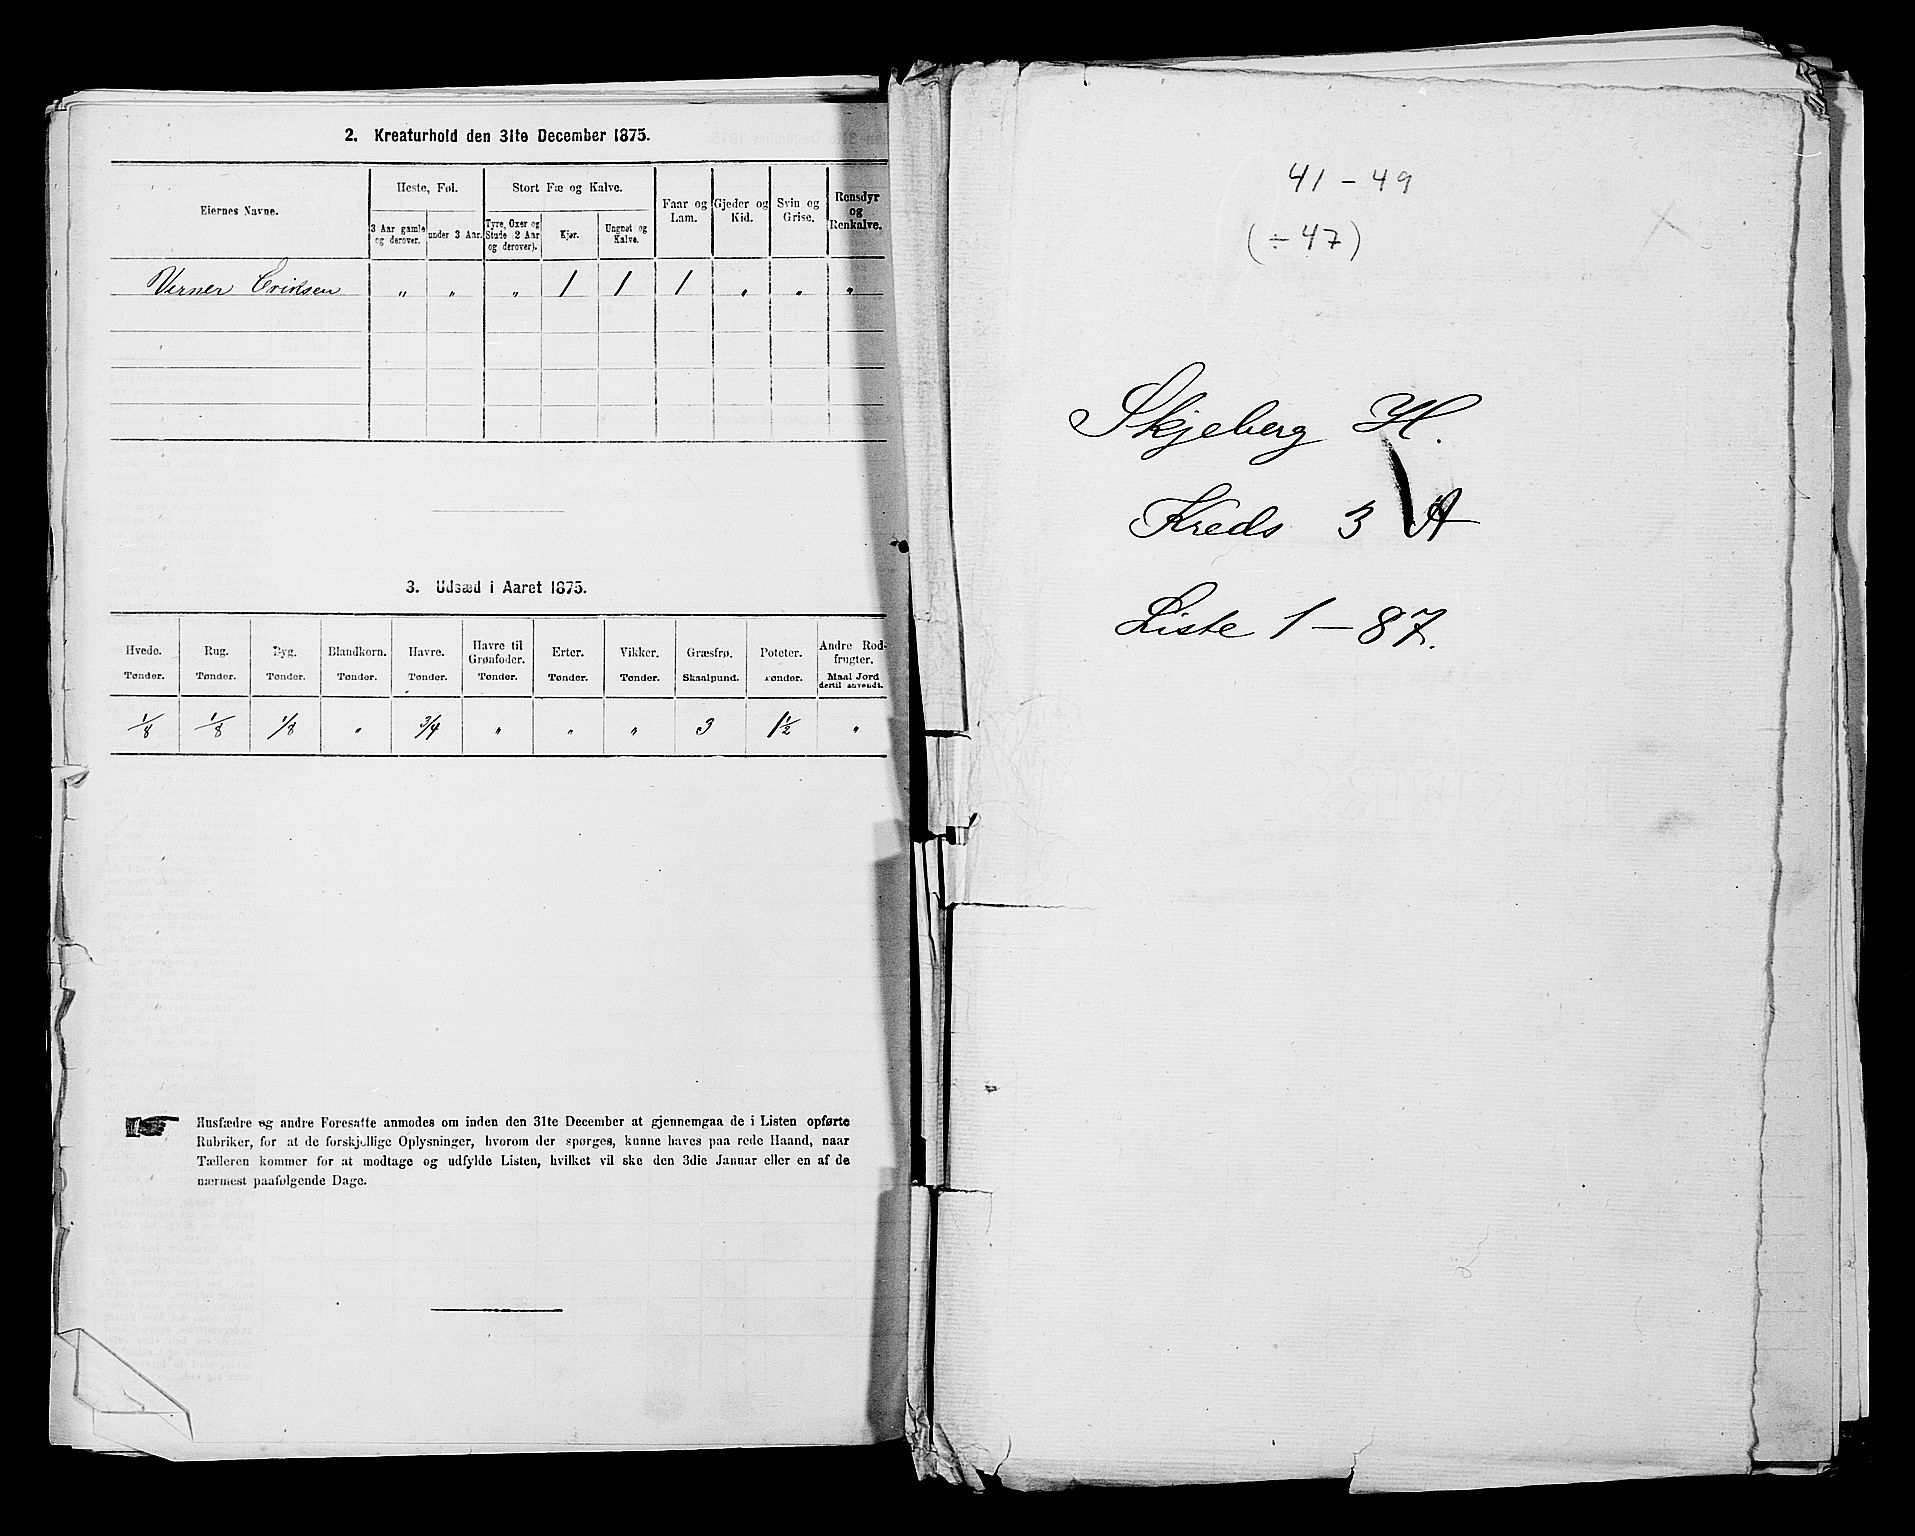 2. Kreaturhold den 31te December 1875.
Eiernes Navne.
Heste, Føl.
Stort Fæ og Kalve.
Faar og Lam.
Gjeder og Kid.
Svin og Grise.
Rensdyr og Renkalve.
3 Aar gamle og derover.
under 3 Aar.
Tyre, Oxer og Stude (2 Aar og derover).
Kjør.
Ungnøt og Kalve.
Verner Eriksen " " " 1 1 1 " " "
3. Udsæd i Aaret 1875.
Hvede. Rug. Byg. Blandkorn. Havre. Havre til Grønfoder. Erter. Vikker. Græsfrø. Poteter. Andre Rodfrugter.
Tønder. Tønder. Tønder. Tønder. Tønder. Tønder. Tønder. Tønder. Skaalpund. Tønder. Maal Jord dertil anvendt.
1/8 1/8 1/8 " 3/4 " " " 3 1 1/2 "
Husfædre og andre Foresatte anmodes om inden den 31te December at gjennemgaa de i Listen opførte
Rubriker, for at de forskjellige Oplysninger, hvorom der spørges, kunne haves paa rede Haand, naar
Tælleren kommer for at modtage og udfylde Listen, hvilket vil ske den 3die Januar eller en af de
nærmest paafølgende Dage.
41 - 49
(÷ 47)
Skjeberg H.
Kreds 3 A
Liste 1 - 87.